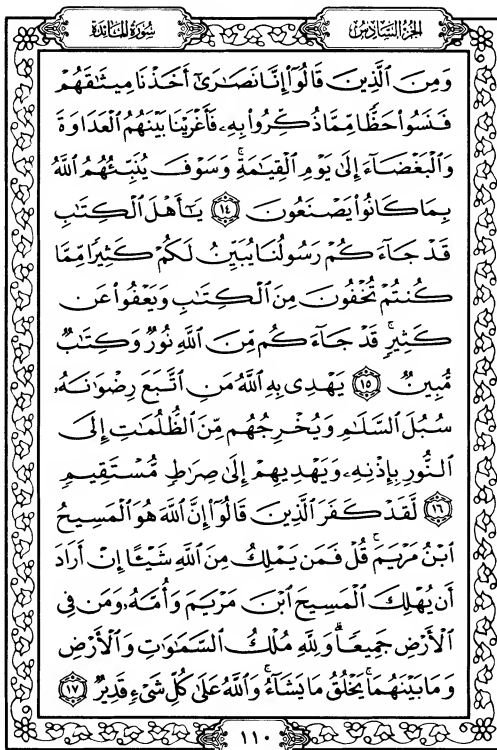 الجزء السادس
سورة المائدة
وَمِنَ الَّذِينَ قَالُوٓا۟ إِنَّا نَصَـٰرَىٰٓ أَخَذْنَا مِيثَـٰقَهُمْ
فَنَسُوا۟ حَظًّا مِّمَّا ذُكِّرُوا۟ بِهِۦ فَأَغْرَيْنَا بَيْنَهُمُ الْعَدَاوَةَ
وَالْبَغْضَآءَ إِلَىٰ يَوْمِ الْقِيَـٰمَةِ ۚ وَسَوْفَ يُنَبِّئُهُمُ اللَّهُ
بِمَا كَانُوا۟ يَصْنَعُونَ ١٤ يَـٰٓأَهْلَ الْكِتَـٰبِ
قَدْ جَآءَكُمْ رَسُولُنَا يُبَيِّنُ لَكُمْ كَثِيرًا مِّمَّا
كُنتُمْ تُخْفُونَ مِنَ الْكِتَـٰبِ وَيَعْفُوا۟ عَن
كَثِيرٍ ۚ قَدْ جَآءَكُم مِّنَ اللَّهِ نُورٌ وَكِتَـٰبٌ
مُّبِينٌ ١٥ يَهْدِى بِهِ اللَّهُ مَنِ اتَّبَعَ رِضْوَٰنَهُۥ
سُبُلَ السَّلَـٰمِ وَيُخْرِجُهُم مِّنَ الظُّلُمَـٰتِ إِلَى
النُّورِ بِإِذْنِهِۦ وَيَهْدِيهِمْ إِلَىٰ صِرَٰطٍ مُّسْتَقِيمٍ
١٦ لَّقَدْ كَفَرَ الَّذِينَ قَالُوٓا۟ إِنَّ اللَّهَ هُوَ الْمَسِيحُ
ابْنُ مَرْيَمَ ۚ قُلْ فَمَن يَمْلِكُ مِنَ اللَّهِ شَيْـًٔا إِنْ أَرَادَ
أَن يُهْلِكَ الْمَسِيحَ ابْنَ مَرْيَمَ وَأُمَّهُۥ وَمَن فِى
الْأَرْضِ جَمِيعًا ۗ وَلِلَّهِ مُلْكُ السَّمَـٰوَٰتِ وَالْأَرْضِ
وَمَا بَيْنَهُمَا ۚ يَخْلُقُ مَا يَشَآءُ ۚ وَاللَّهُ عَلَىٰ كُلِّ شَىْءٍ قَدِيرٌ ١٧
١١٠